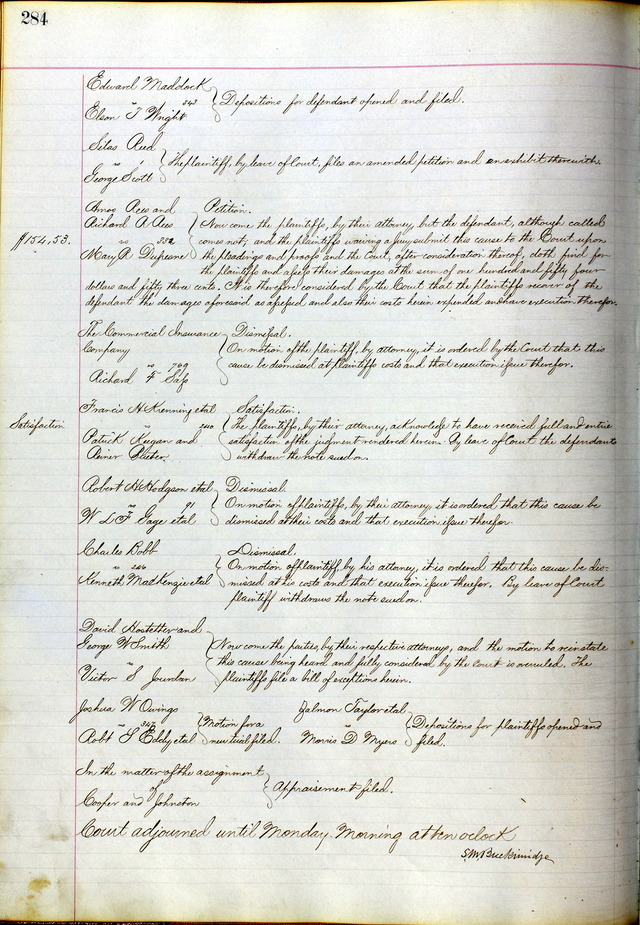 284
Edward Maddock
vs 343 Depositions for defendant opened and filed.
Elson T Wright
Silas Reed
vs The plaintiff, by leave of Court, files an amended petition and an exhibit therewith.
George Scott
Amos Rees and Petition.
Richard A Rees Now come the plaintiffs, by their attorney, but the defendant, although called
$154.53. vs 332 comes not, and the plaintiffs waiving a jury submit this cause to the Court upon
Mary A Dufresne the pleadings and proofs and the Court, after consideration thereof, doth find for
the plaintiffs and assess their damages at the sum of one hundred and fifty four
dollars and fifty three cents. It is therefore considered by the Court that the plaintiffs recover of the
defendant the damages aforesaid as assessed and also their costs herein expended and have execution therefor.
The Commercial Insurance Dismissal.
Company On motion of the plaintiff, by attorney, it is ordered by the Court that this
vs 769 cause be dismissed at plaintiffs costs and that execution issue therefor.
Richard F Sass
Francis H Kenning etal Satisfaction.
Satisfaction vs The plaintiffs, by their attorney, acknowledge to have received full and entire
Patrick Kegan and satisfaction of the judgment rendered herein. By leave of Court the defendants
withdraw the note sued on.
Robert H Hodgson etal Dismissal.
vs 91 On motion of plaintiffs, by their attorney, it is ordered that this cause be
W L F Gage etal dismissed at their costs and that execution issue therefor.
Charles Bobb Dismissal.
vs 266 On motion of plaintiff, by his attorney, it is ordered that this cause be dis-
Kenneth MacKenzie etal missed at his costs and that execution issue therefor. By leave of Court
plaintiff withdraws the note sued on.
David Hostetter and
George W Smith Now come the parties, by their respective attorneys, and the motion to reinstate
vs this cause being heard and fully considered by the court is overruled. The
Victor S Jourdan plaintiffs file a bill of exceptions herein.
Joshua W Owings Zalmon Taylor etal
vs 347 Motion for a vs Depositions for plaintiffs opened and
Robt S Eddy etal new trial filed. Morris D Myers filed.
In the matter of the assignment
of Appraisement filed.
Cooper and Johnston
Court adjourned until Monday Morning at ten oclock
S.M. Breckinridge